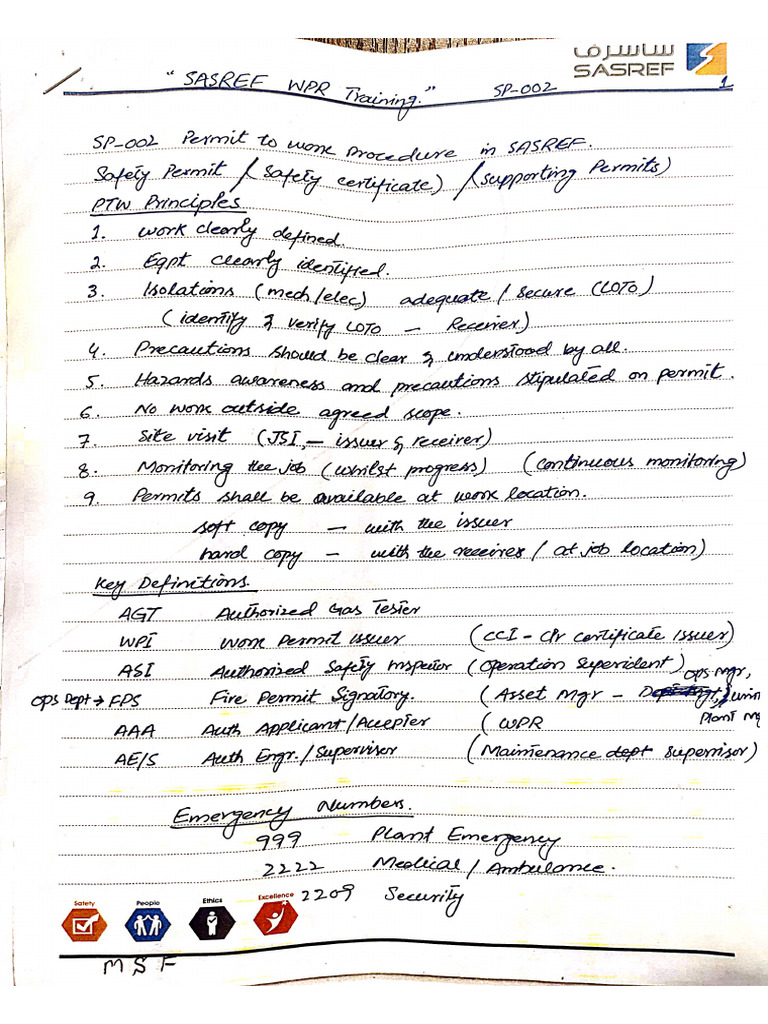 ساسرف
SASREF
"SASREF WPR Training." SP-002 1
SP-002 Permit to work Procedure in SASREF.
Safety Permit / (Safety certificate) / (supporting Permits)
PTW Principles
1. work clearly defined.
2. Eqpt clearly identified.
3. Isolations (mech/elec) adequate / Secure (LOTO)
(identify & verify LOTO - Receiver)
4. Precautions should be clear & understood by all.
5. Hazards awareness and precautions stipulated on permit.
6. No work outside agreed scope.
7. Site visit (JSI, - issuer & receiver)
8. Monitoring the job (whilst progress) (continuous monitoring)
9. Permits shall be available at work location.
soft copy - with the issuer
hard copy - with the receiver / at job location)
Key Definitions
AGT Authorized Gas Tester
WPI Work Permit issuer (CCI - Clr Certificate Issuer)
ASI Authorized Safety Inspetor (Operation Superident)
OPS Dept → FPS Fire Permit Signatory. (Asset Mgr - OPS Mgr,
Plant Mg
AAA Auth Applicant/Accepter (WPR
AE/S Auth Engr./Supervisor (Maintenance dept supervisor)
Emergency Numbers.
999 Plant Emergency
2222 Medical / Ambulance.
2209 Security
Safety People Ethics Excellence
MSF